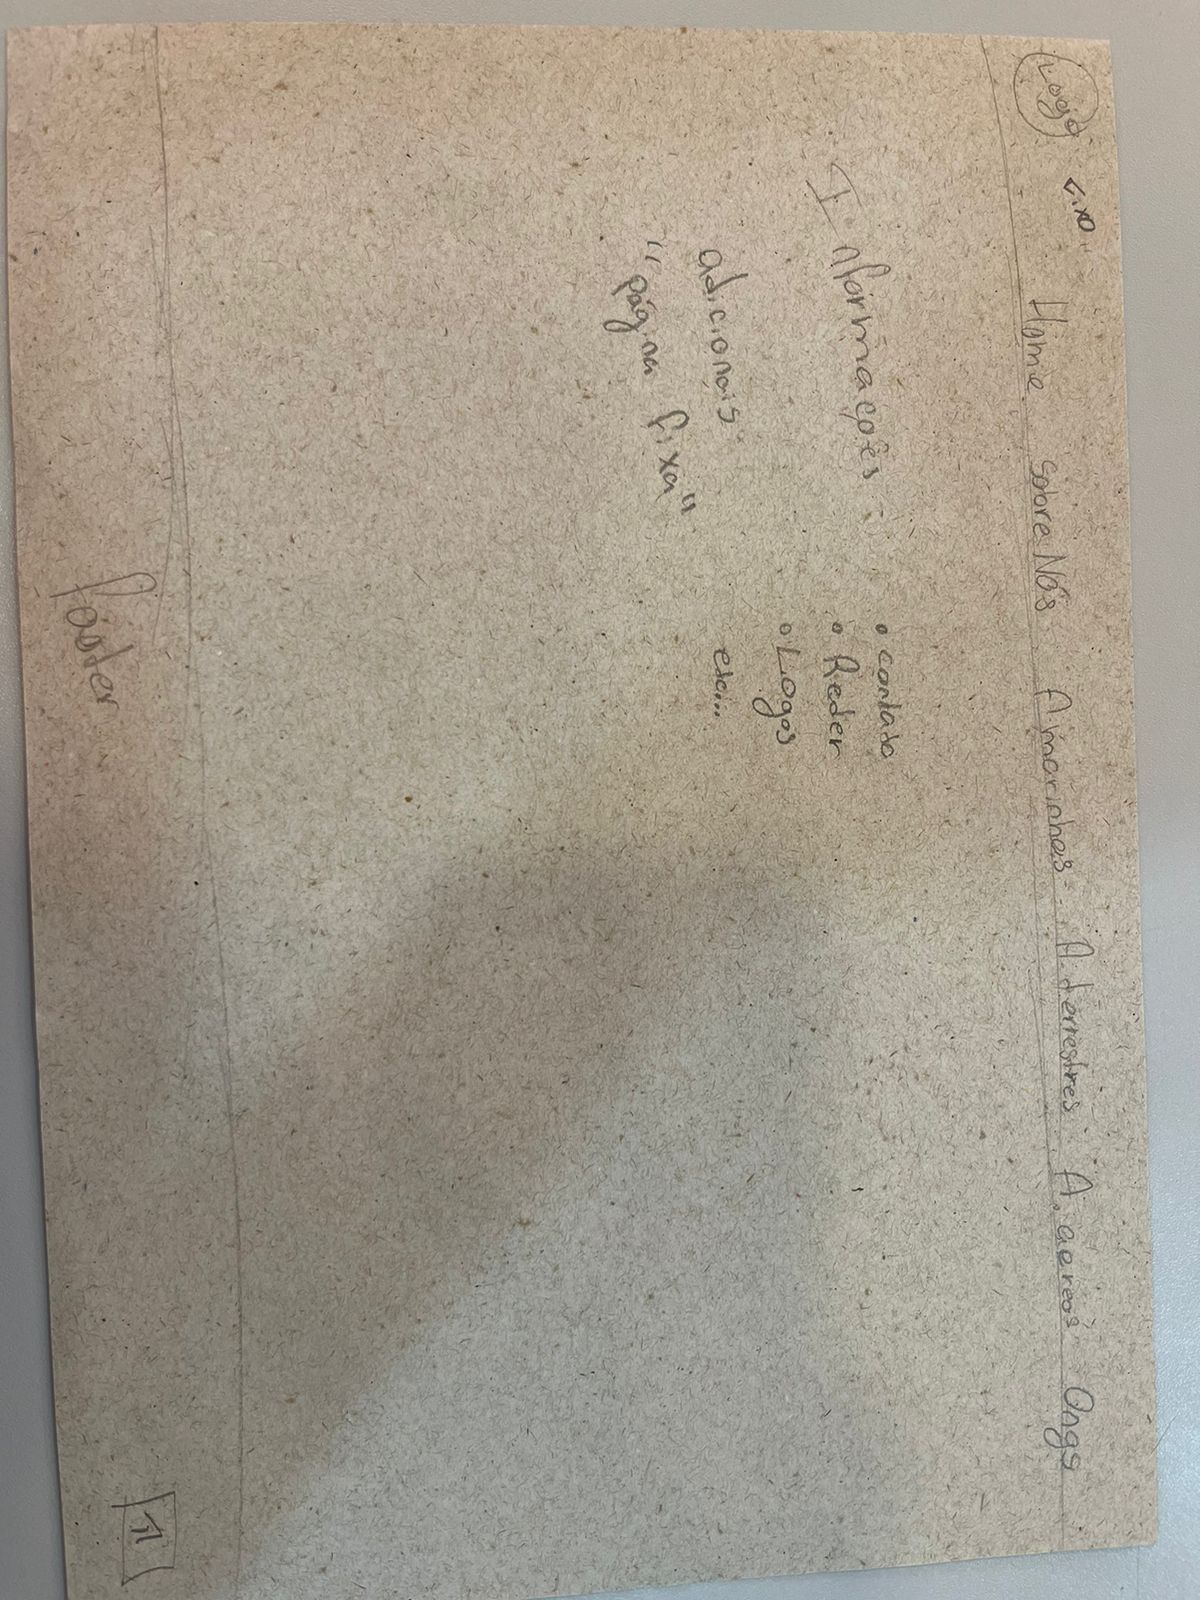 Logo Fixo Home Sobre Nós A.marinhos A.terrestres A. aereos Ongs
Informações
adicionais
"página fixa"
contato
Redes
Logos
etc...
footer